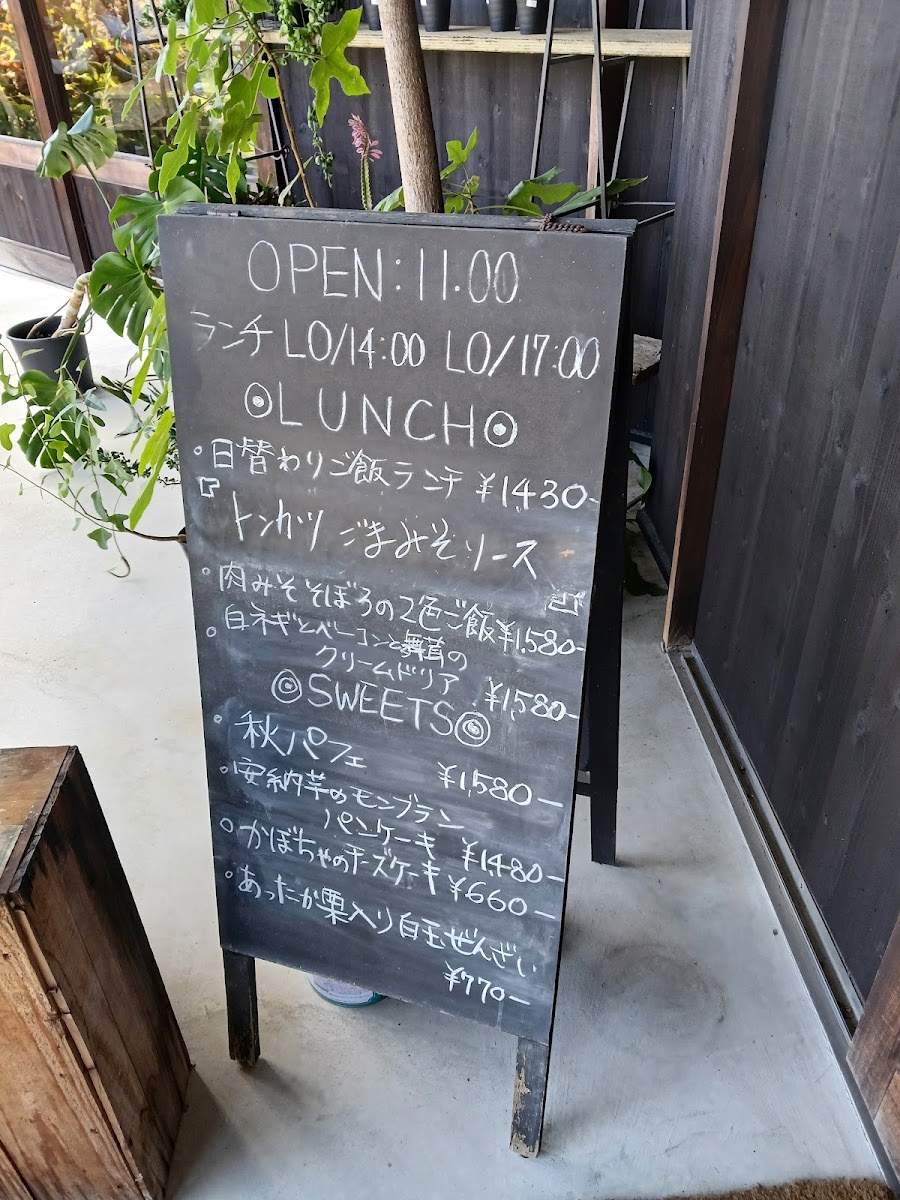 OPEN:11.00
ランチ LO/14:00 LO/17:00
◎LUNCH◎
・日替わりご飯ランチ ¥1,430-
『トンカツ ごまみそソース』
・肉みそそぼろの2色ご飯 ¥1,580-
・白ネギとベーコンと舞茸の
クリームドリア ¥1,580-
◎SWEETS◎
・秋パフェ ¥1,580-
・安納芋のモンブラン
パンケーキ ¥1,480-
・かぼちゃのチーズケーキ ¥660-
・あったか栗入り白玉ぜんざい
¥770-